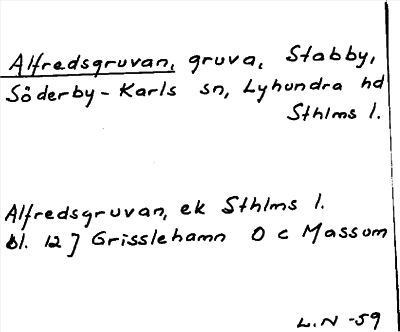 Alfredsgruvan, gruva, Stabby,
Söderby-Karls sn, Lyhundra hd
Sthlms l.
Alfredsgruvan, ek Sthlms l.
bl. 127 Grisslehamn O c Massum
L.N -59